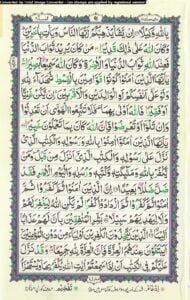 Converted by Total Image Converter - (no stamps are applied by registered version)
بِاللّٰهِ وَكِيْلًا اِنْ يَّشَاْ يُذْهِبْكُمْ اَيُّهَا النَّاسُ وَيَاْتِ بِاٰخَرِيْنَ
وَكَانَ اللّٰهُ عَلٰى ذٰلِكَ قَدِيْرًا مَنْ كَانَ يُرِيْدُ ثَوَابَ الدُّنْيَا
فَعِنْدَ اللّٰهِ ثَوَابُ الدُّنْيَا وَالْاٰخِرَةِ وَكَانَ اللّٰهُ سَمِيْعًا بَصِيْرًا
يٰۤاَيُّهَا الَّذِيْنَ اٰمَنُوْا كُوْنُوْا قَوّٰمِيْنَ بِالْقِسْطِ شُهَدَآءَ لِلّٰهِ
وَلَوْ عَلٰۤى اَنْفُسِكُمْ اَوِ الْوَالِدَيْنِ وَالْاَقْرَبِيْنَ اِنْ يَّكُنْ غَنِيًّا
اَوْ فَقِيْرًا فَاللّٰهُ اَوْلٰى بِهِمَا فَلَا تَتَّبِعُوا الْهَوٰۤى اَنْ تَعْدِلُوْا
وَاِنْ تَلْوٗۤا اَوْ تُعْرِضُوْا فَاِنَّ اللّٰهَ كَانَ بِمَا تَعْمَلُوْنَ خَبِيْرًا
يٰۤاَيُّهَا الَّذِيْنَ اٰمَنُوْۤا اٰمِنُوْا بِاللّٰهِ وَرَسُوْلِهٖ وَالْكِتٰبِ الَّذِيْ
نَزَّلَ عَلٰى رَسُوْلِهٖ وَالْكِتٰبِ الَّذِيْۤ اَنْزَلَ مِنْ قَبْلُ وَمَنْ
يَّكْفُرْ بِاللّٰهِ وَمَلٰٓئِكَتِهٖ وَكُتُبِهٖ وَرُسُلِهٖ وَالْيَوْمِ الْاٰخِرِ فَقَدْ ضَلَّ
ضَلٰلًۢا بَعِيْدًا اِنَّ الَّذِيْنَ اٰمَنُوْا ثُمَّ كَفَرُوْا ثُمَّ اٰمَنُوْا ثُمَّ كَفَرُوْا
ثُمَّ ازْدَادُوْا كُفْرًا لَّمْ يَكُنِ اللّٰهُ لِيَغْفِرَ لَهُمْ وَلَا لِيَهْدِيَهُمْ
سَبِيْلًا بَشِّرِ الْمُنٰفِقِيْنَ بِاَنَّ لَهُمْ عَذَابًا اَلِيْمًا الَّذِيْنَ
يَتَّخِذُوْنَ الْكٰفِرِيْنَ اَوْلِيَآءَ مِنْ دُوْنِ الْمُؤْمِنِيْنَ
اَيَبْتَغُوْنَ عِنْدَهُمُ الْعِزَّةَ فَاِنَّ الْعِزَّةَ لِلّٰهِ جَمِيْعًا وَقَدْ نَزَّلَ
عَلَيْكُمْ فِي الْكِتٰبِ اَنْ اِذَا سَمِعْتُمْ اٰيٰتِ اللّٰهِ